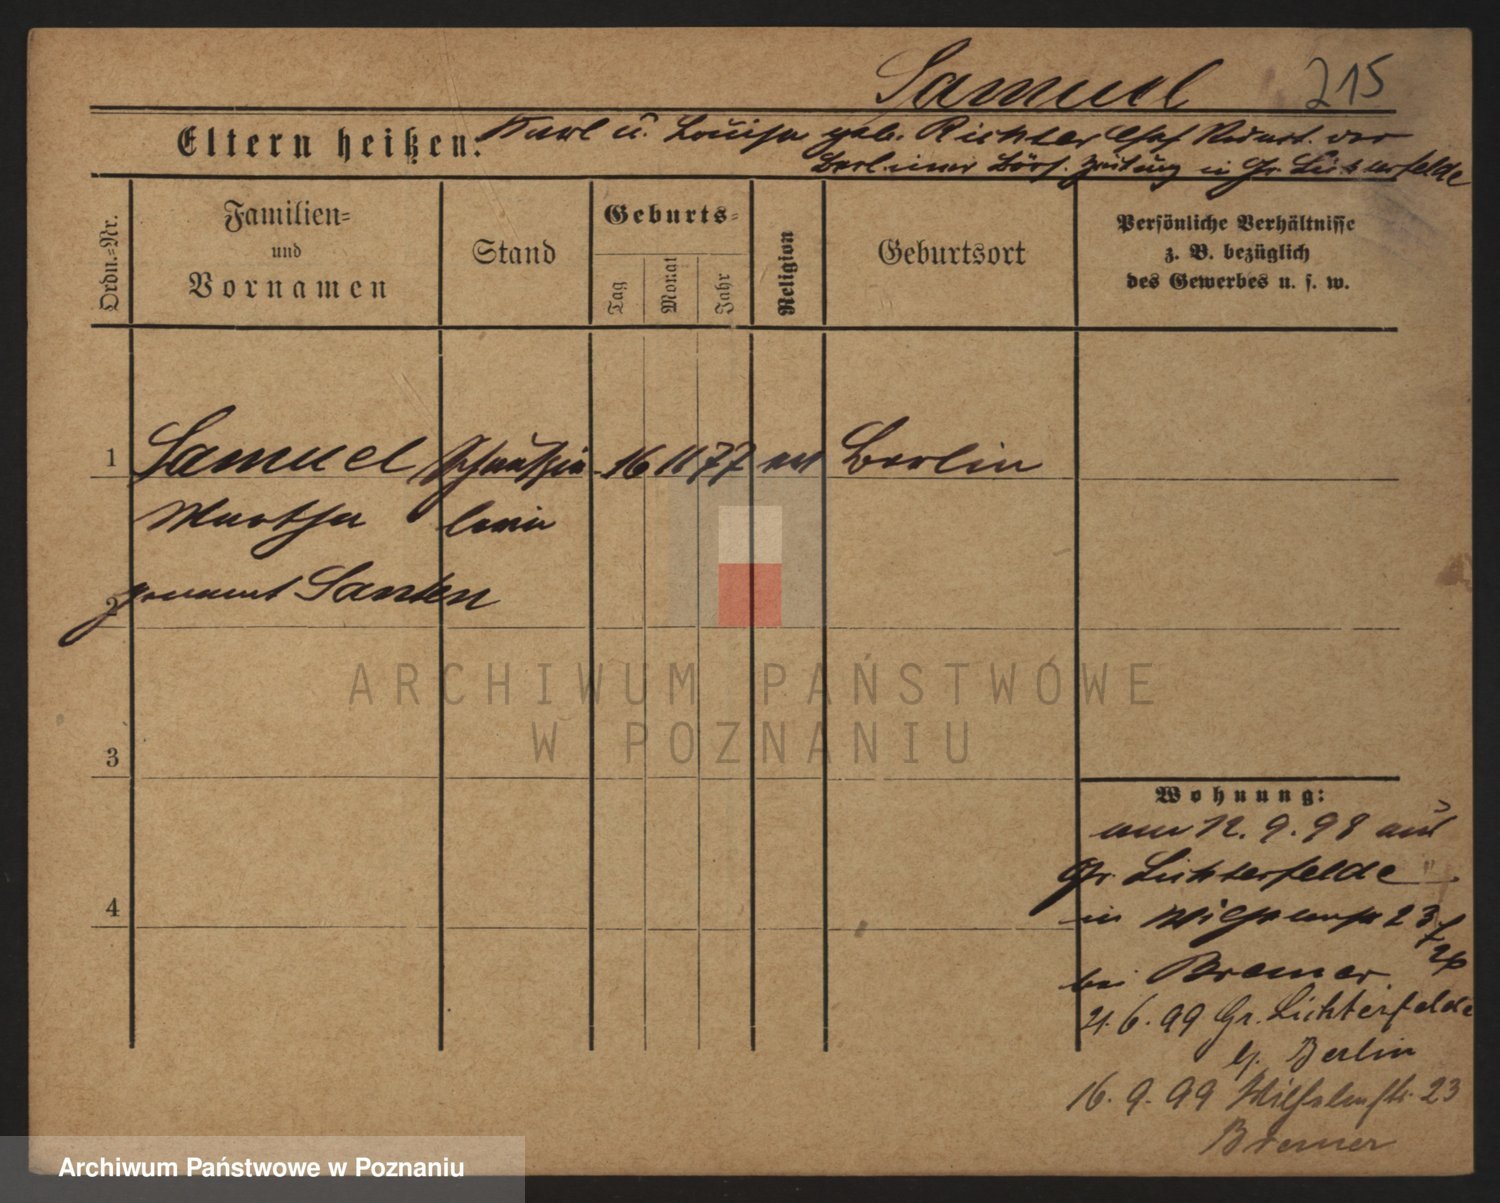 Samuel 215
Eltern heißen: Karl u. Louise geb. Richter Chef Redact. der
Berliner Börs. Zeitung in Gr. Lichterfelde
Ordn.-Nr.
Familien-
und
Vornamen
Stand
Geburts-
Tag
Monat
Jahr
Religion
Geburtsort
Persönliche Verhältnisse
z. B. bezüglich
des Gewerbes u. s. w.
1 Samuel Schauspie- 16 11 77 Berlin
Martha lerin
genannt Santen
2
3
4
Wohnung:
am 12. 9. 98 aus
Gr. Lichterfelde
in Wilhelmstr 23
bei Bremer
21. 6. 99 Gr. Lichterfelde
b. Berlin
16. 9. 99 Wilhelmstr. 23
Bremer
ARCHIWUM PAŃSTWOWE
W POZNANIU
Archiwum Państwowe w Poznaniu